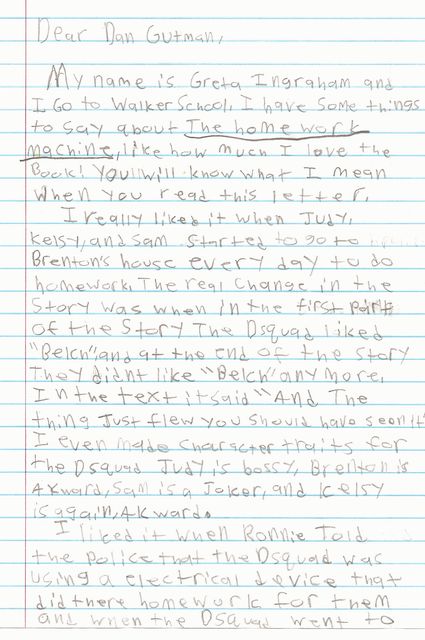 Dear Dan Gutman,
My name is Greta Ingraham and
I Go to Walker School, I have Some things
to say about The home work
machine, like how much I love the
Book! You will know what I mean
when you read this letter.
I really liked it when Judy,
kelsy, and Sam Started to go to
Brenton's house every day to do
homework. The real Change in the
Story was when in the first part
of the Story The Dsquad liked
"Belch", and at the end of the Story
They didnt like "Belch" any more.
In the text it said "And The
thing Just flew you Should have seen it"
I even made character traits for
the Dsquad Judy is bossy, Brenton is
AKward, Sam is a Joker, and kelsy
is again, AKward.
I liked it when Ronnie Told
the police that the Dsquad was
using a electrical device that
did there homework for them
and when the DSquad went to